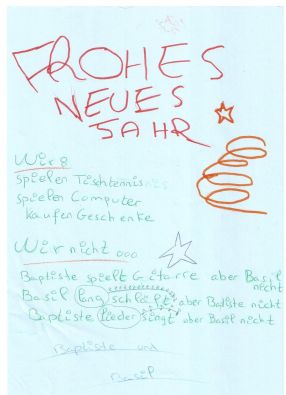 FROHES
NEUES
JAHR
Wir:
spielen Tischtennis
spielen Computer
kaufen Geschenke
Wir nicht ...
Baptiste spielt Gitarre aber Basil nicht
Basil lang schläft aber Batiste nicht
Baptiste lieder singt aber Basil nicht
Baptiste und
Basil